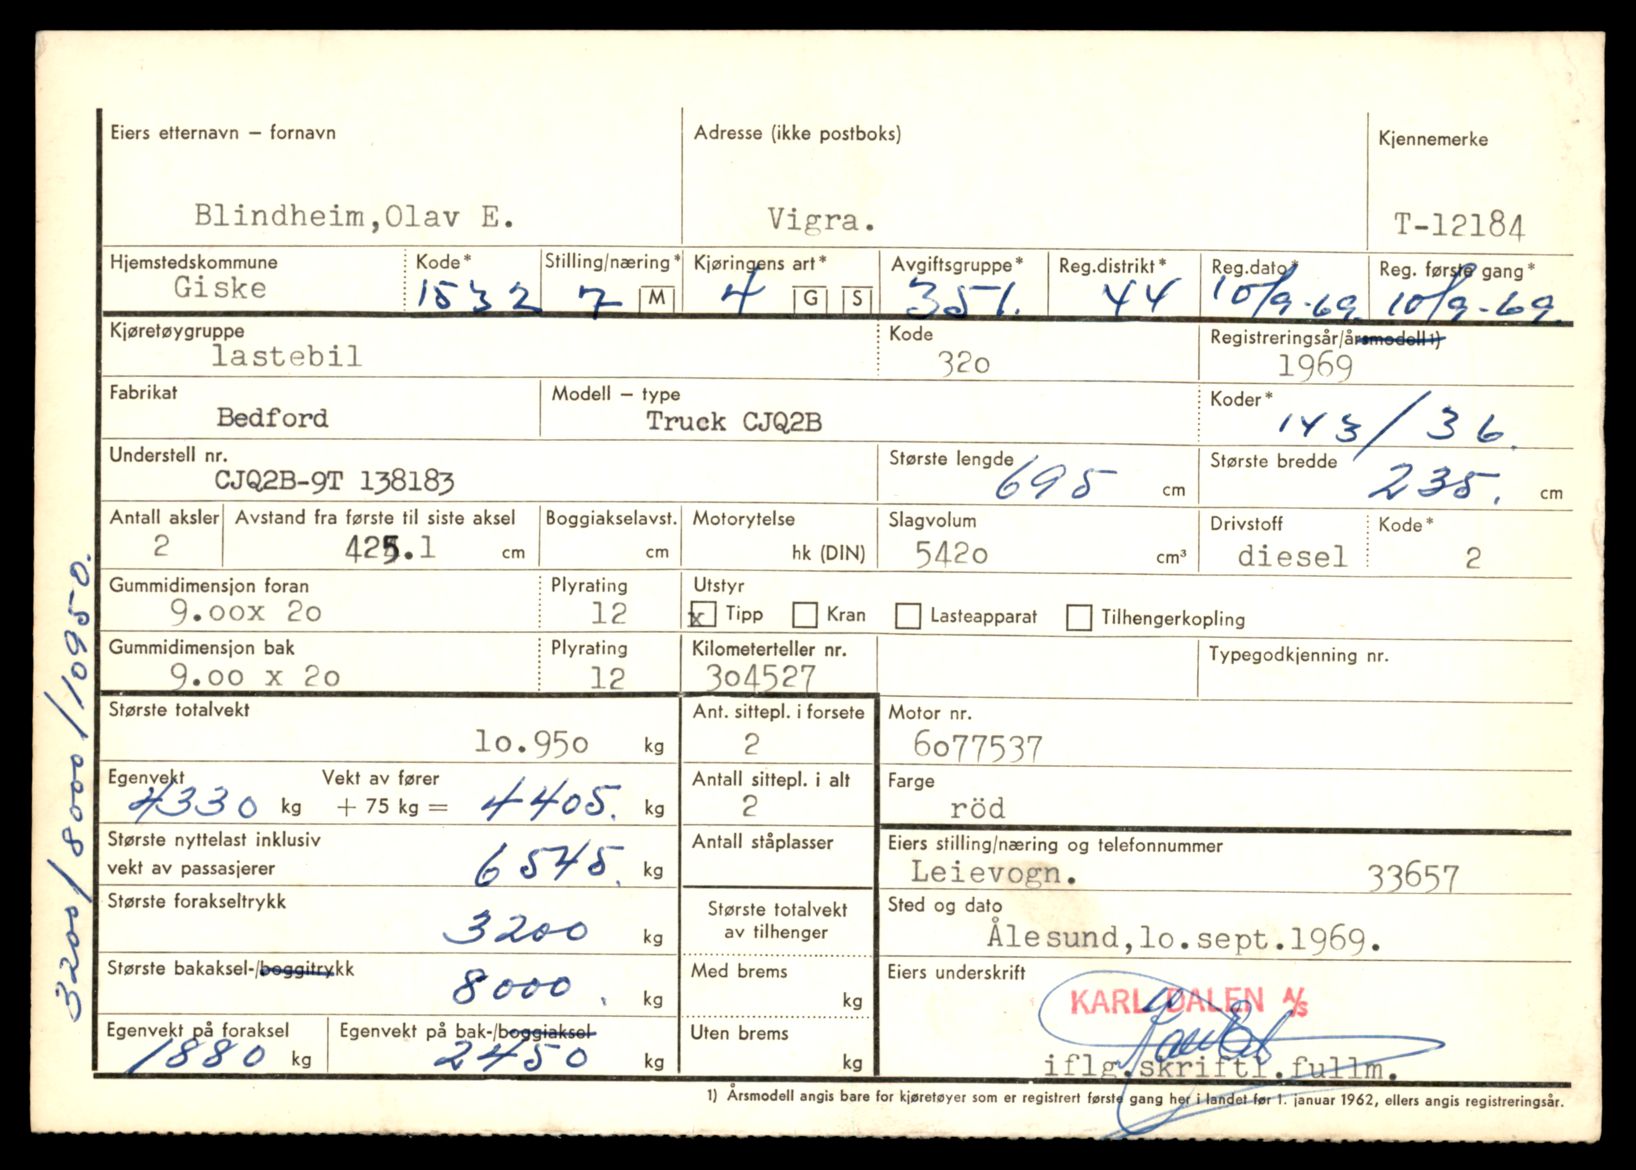 Eiers etternavn – fornavn Adresse (ikke postboks) Kjennemerke
Blindheim,Olav E. Vigra. T-12184
Hjemstedskommune Kode* Stilling/næring* Kjøringens art* Avgiftsgruppe* Reg.distrikt* Reg.dato* Reg. første gang*
Giske 1532 7 M 4 G S 351. 44 10/9-69. 10/9-69.
Kjøretøygruppe Kode Registreringsår/årsmodell 1)
lastebil 320 1969
Fabrikat Modell – type Koder*
Bedford Truck CJQ2B 143/36.
Understell nr. Største lengde Største bredde
CJQ2B-9T 138183 695 cm 235. cm
Antall aksler Avstand fra første til siste aksel Boggiakselavst. Motorytelse Slagvolum Drivstoff Kode*
2 425.1 cm cm hk (DIN) 5420 cm³ diesel 2
Gummidimensjon foran Plyrating Utstyr
9.00x 20 12 x Tipp Kran Lasteapparat Tilhengerkopling
Gummidimensjon bak Plyrating Kilometerteller nr. Typegodkjenning nr.
9.00 x 20 12 304527
Største totalvekt Ant. sittepl. i forsete Motor nr.
10.950 kg 2 6077537
Egenvekt Vekt av fører Antall sittepl. i alt Farge
4330 kg + 75 kg = 4405. kg 2 röd
Største nyttelast inklusiv vekt av passasjerer Antall ståplasser Eiers stilling/næring og telefonnummer
6545. kg Leievogn. 33657
Største forakseltrykk Største totalvekt av tilhenger Sted og dato
3200 kg Ålesund,10.sept.1969.
Største bakaksel-/boggitrykk Med brems Eiers underskrift
8000. kg kg KARL DALEN A/S
Egenvekt på foraksel Egenvekt på bak-/boggiaksel Uten brems
1880 kg 2450 kg kg iflg.skriftl.fullm.
1) Årsmodell angis bare for kjøretøyer som er registrert første gang her i landet før 1. januar 1962, ellers angis registreringsår.
3200/8000/10950.